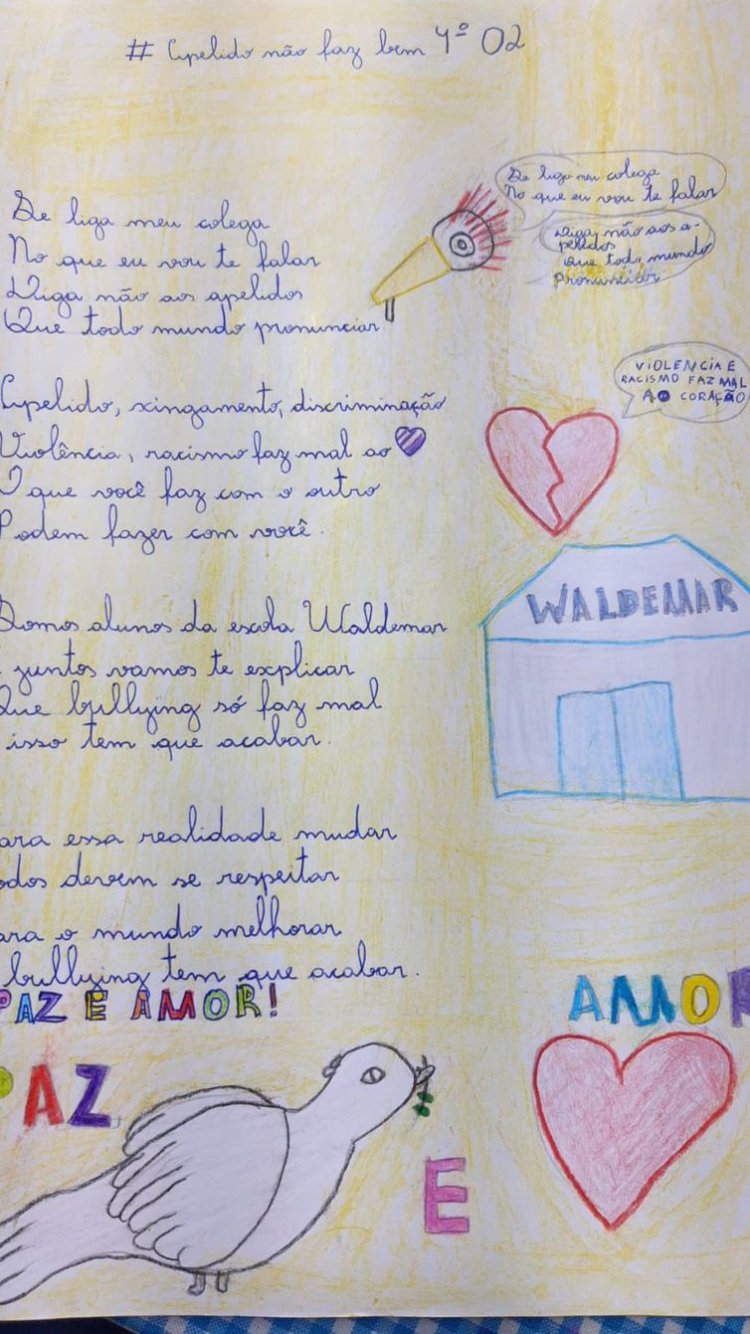 # Apelido não faz bem 4º 02
Se liga meu colega
No que eu vou te falar
Diga não aos apelidos
Que todo mundo pronunciar
Se liga meu colega
No que eu vou te falar
Diga não aos a-
pelidos
Que todo mundo
Pronunciar
Apelido, xingamento, discriminação
Violência, racismo faz mal ao
O que você faz com o outro
Podem fazer com você.
VIOLENCIA E
RACISMO FAZ MAL
AO CORAÇÃO
WALDEMAR
Somos alunos da escola Waldemar
juntos vamos te explicar
Que bullying só faz mal
isso tem que acabar.
ara essa realidade mudar
odos devem se respeitar
ara o mundo melhorar
bullying tem que acabar.
PAZ E AMOR!
AMOR
PAZ
E